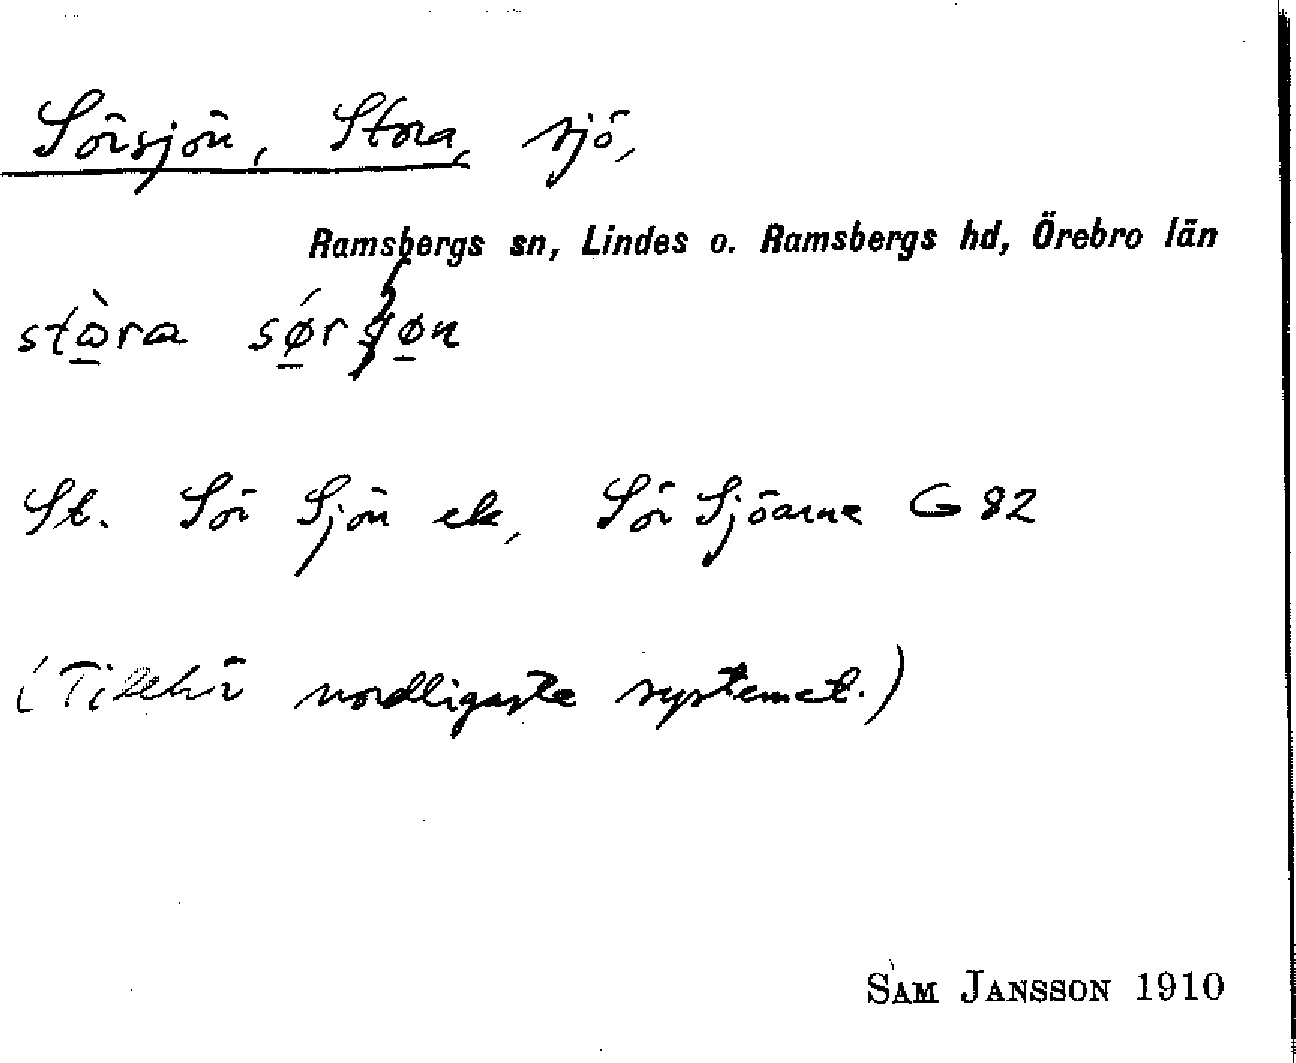 Sörsjön, Stora, sjö,
Ramsbergs sn, Lindes o. Ramsbergs hd, Örebro län
stò̲ra sǿ̲rʃø̲n
St. Sör Sjön ek, Sör Sjöarne G 82
(Tillhör nordligaste systemet.)
SAM JANSSON 1910